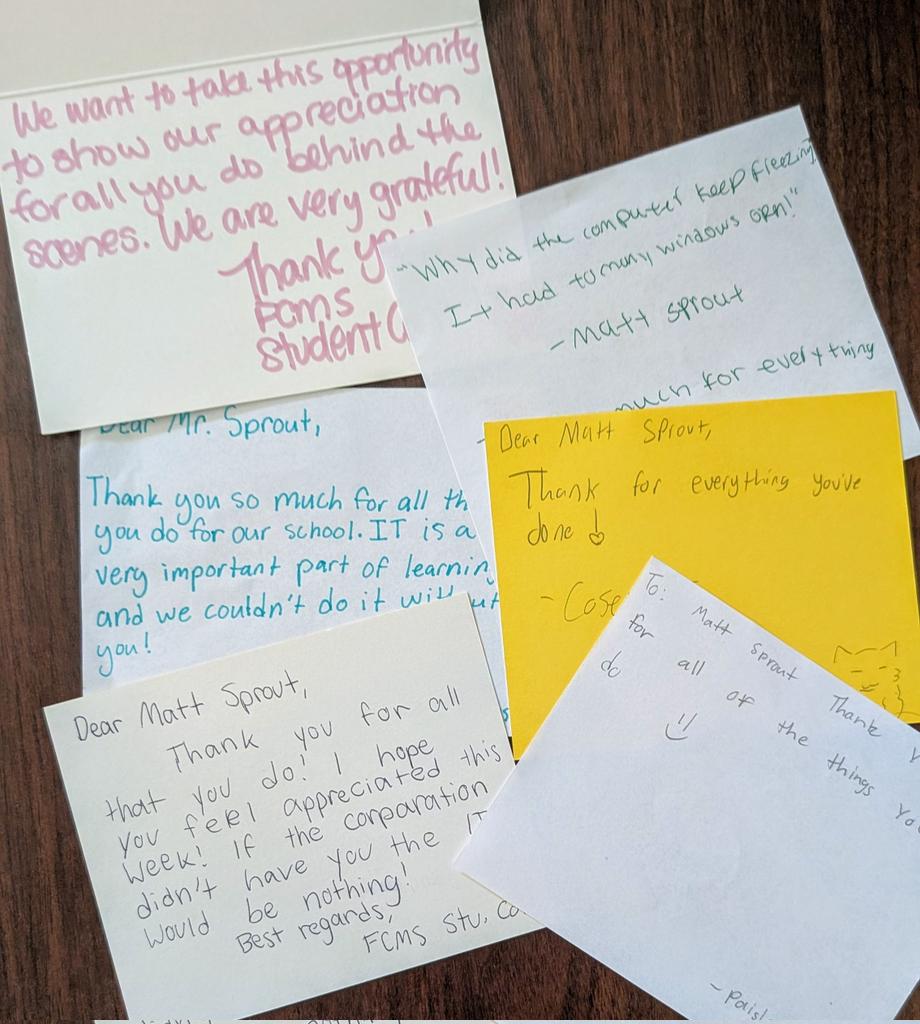 We want to take this opportunity
to show our appreciation
for all you do behind the
scenes. We are very grateful!
Thank
FCMS
Student
"Why did the computer keep freezing,
It had to many windows open!"
- Matt Sprout
much for everything
Dear Mr. Sprout,
Thank you so much for all
you do for our school. IT is a
very important part of
and we couldn't do it
you!
Dear Matt Sprout,
Thank for everything you've
done !
Dear Matt Sprout,
Thank you for all
that you do! I hope
you feel appreciated this
week! If the corparation
didn't have you the IT
would be nothing!
Best regards,
FCMS Stu.
To: Matt Sprout Thank
for all of the things
do